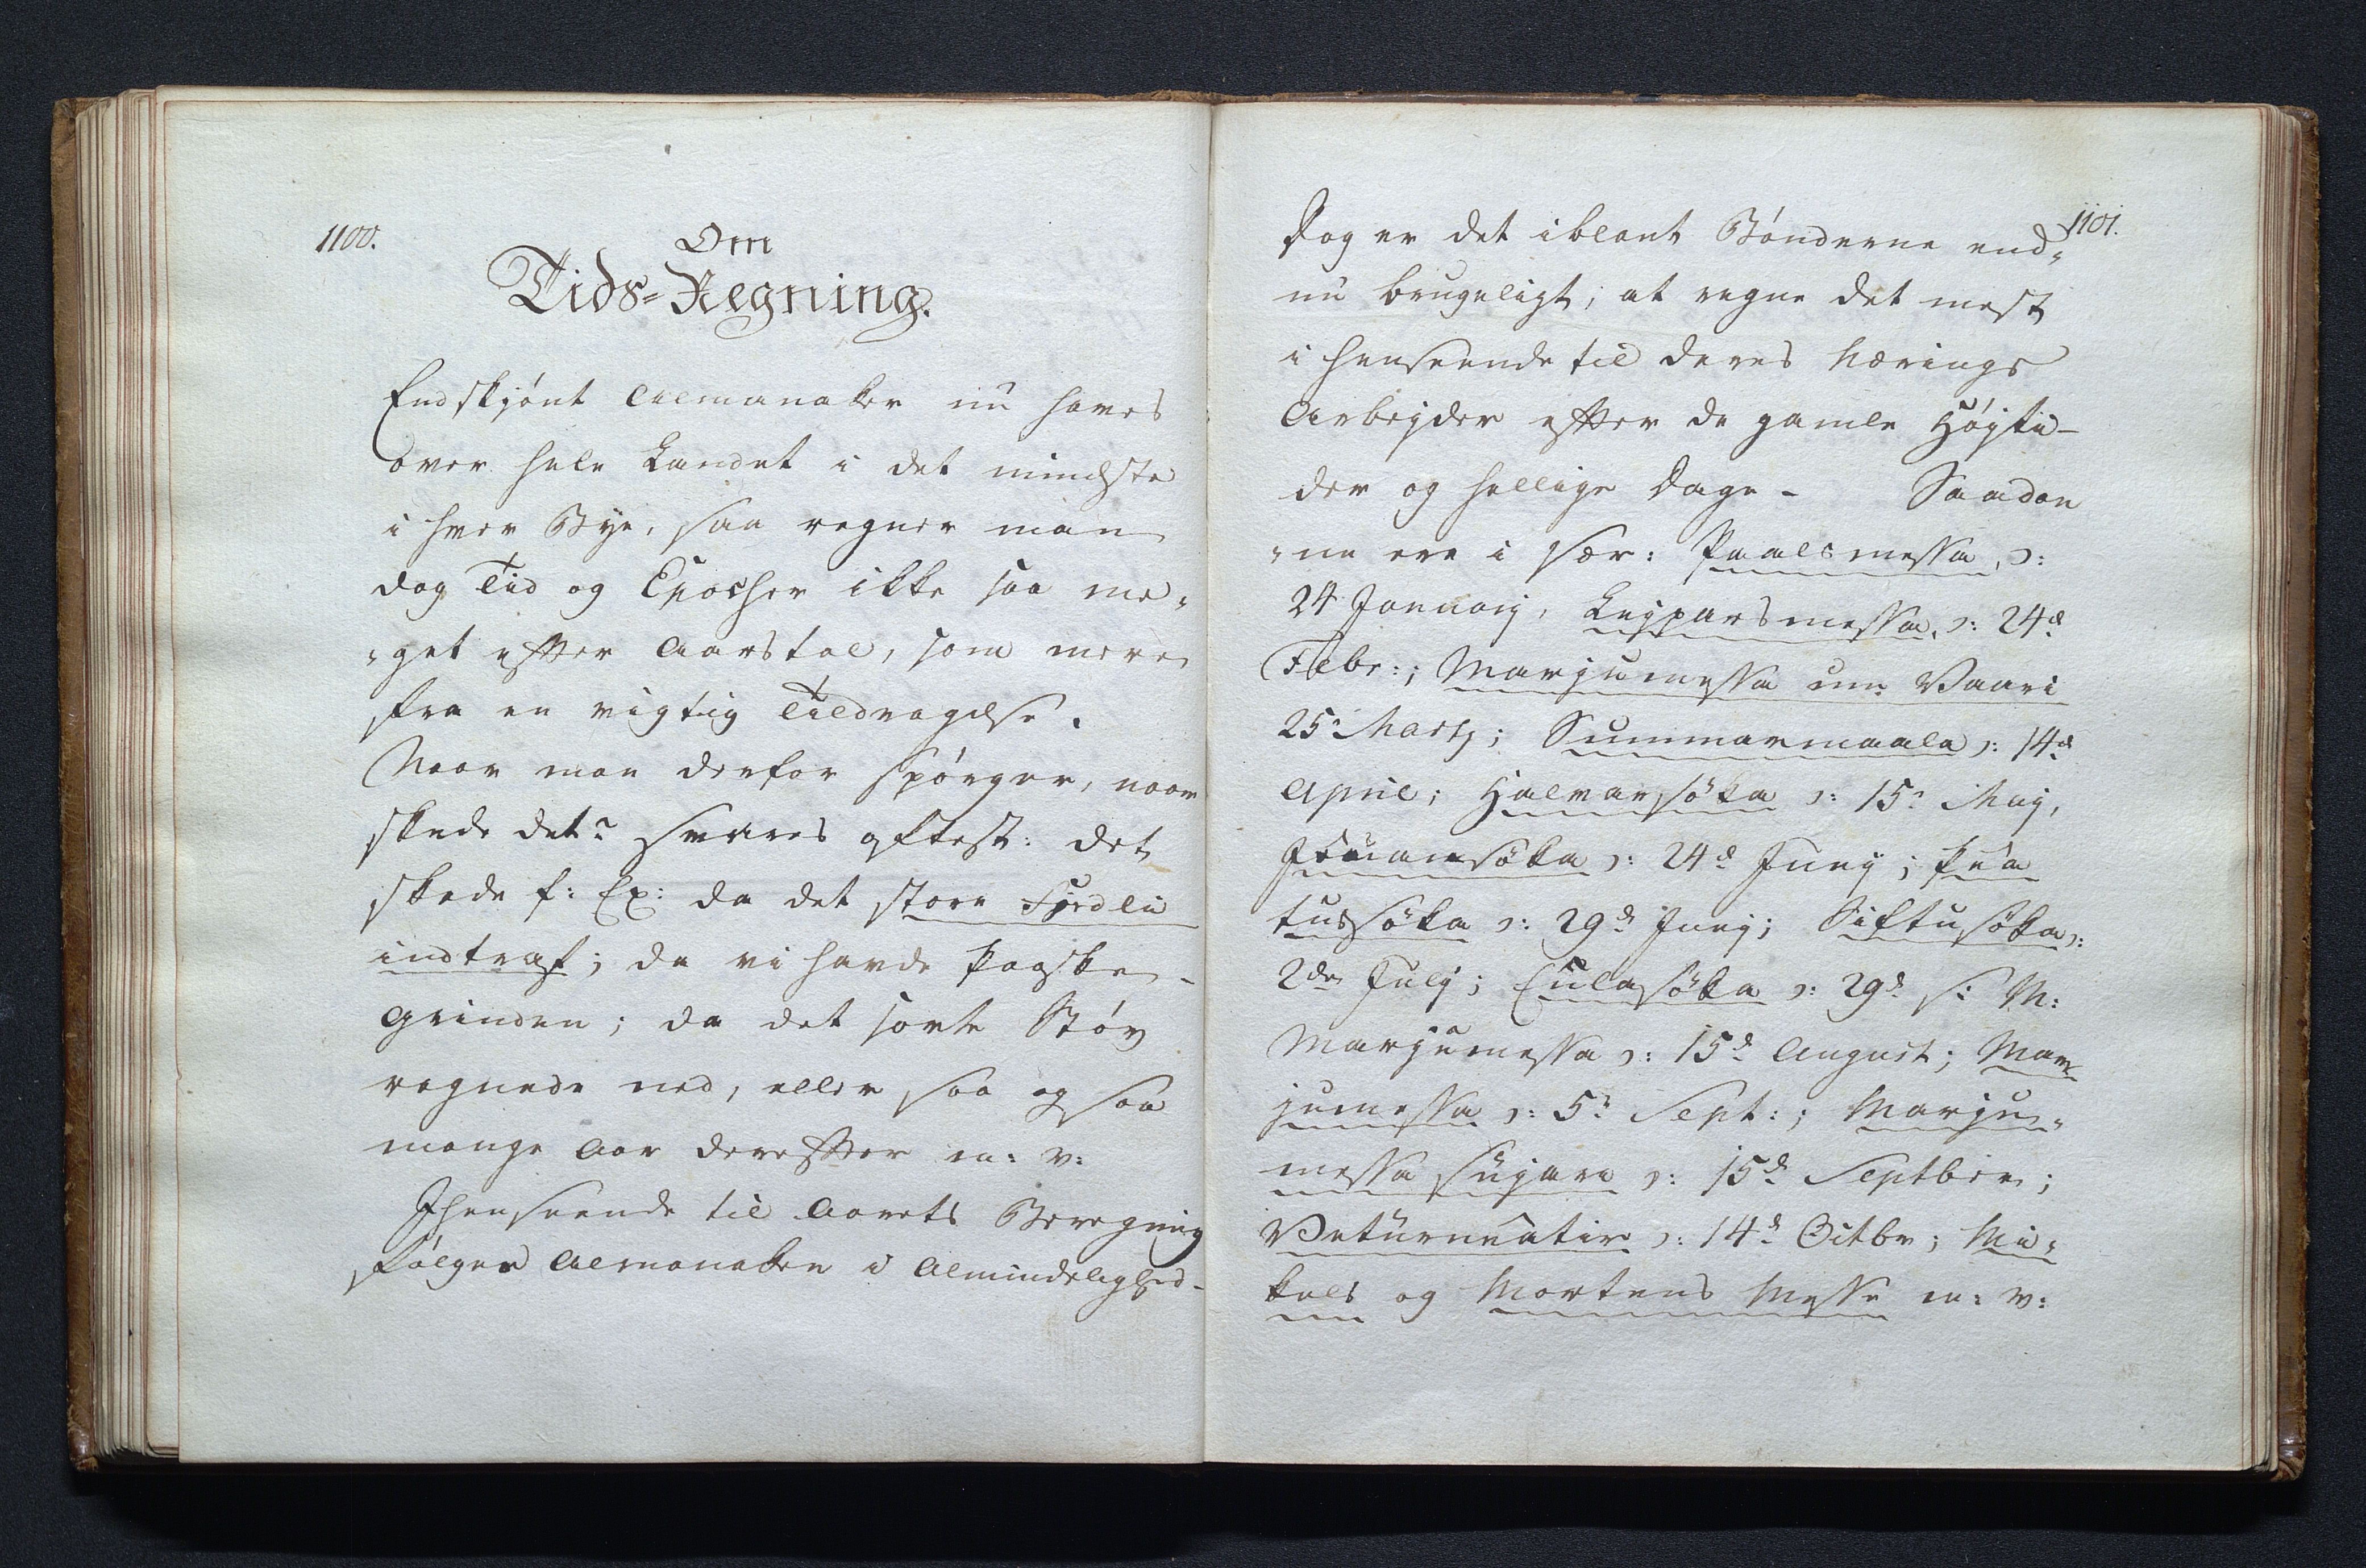 1100.
Om
Tids-Regning.
Endskjönt Allmanaker nu haves
over hele Landet i det mindste
i hver Bye, saa regner man
dog Tid og Epocher ikke saa me,
,get efter Aarstal, som mere
fra en vigtig Tildragelse.
Naar man derfor spörger, naar
skede det? svares oftest: det
skede f: Ex: da det store
indtraf; da vi havde Paaske-
grinden; da det sorte Stöv
regnede ned, eller saa og saa
mange Aar derefter m: v:
Ihenseende til Aarets Beregning
fölges Almanaken i Almindelighed-
1101.
Dog er det iblant Bönderne end,
nu brugeligt, at regne det mest
i henseende til deres Nærings
Arbejder efter de gamle Höjti-
der og hellige Dage - Saadan
,ne ere i sær: Paalsmessa, ɔ:
24 Januarij, Lejparsmessa, ɔ: 24d
Febr:; Marjumessa um Vaari
25 Martj; Summarmaala ɔ: 14d
April; Halvarsöka ɔ: 15 Maj,
Jöuansöka ɔ: 24d Junij; Pea
tussöka ɔ: 29d Junij; Siftusöka ɔ:
2den Julij; Eulasöka ɔ: 29d s: M:
Marjumessa ɔ: 15d August; Mar
jumessa ɔ: 5 Sept:; Marju,
messa sujara ɔ: 15d Septbr;
Veturneatir ɔ: 14d Octbr; Mi,
kals og Mortens Messe m: v: